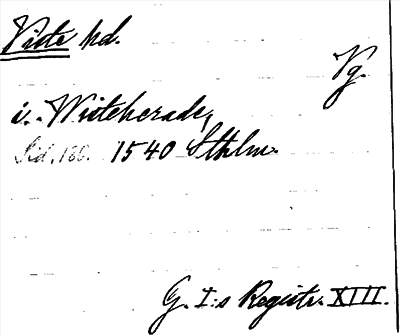 Viste hd.
Vg.
i. Wisteherade,
Sid. 160. 1540 Sthlm.
G. I:s Registr. XIII.